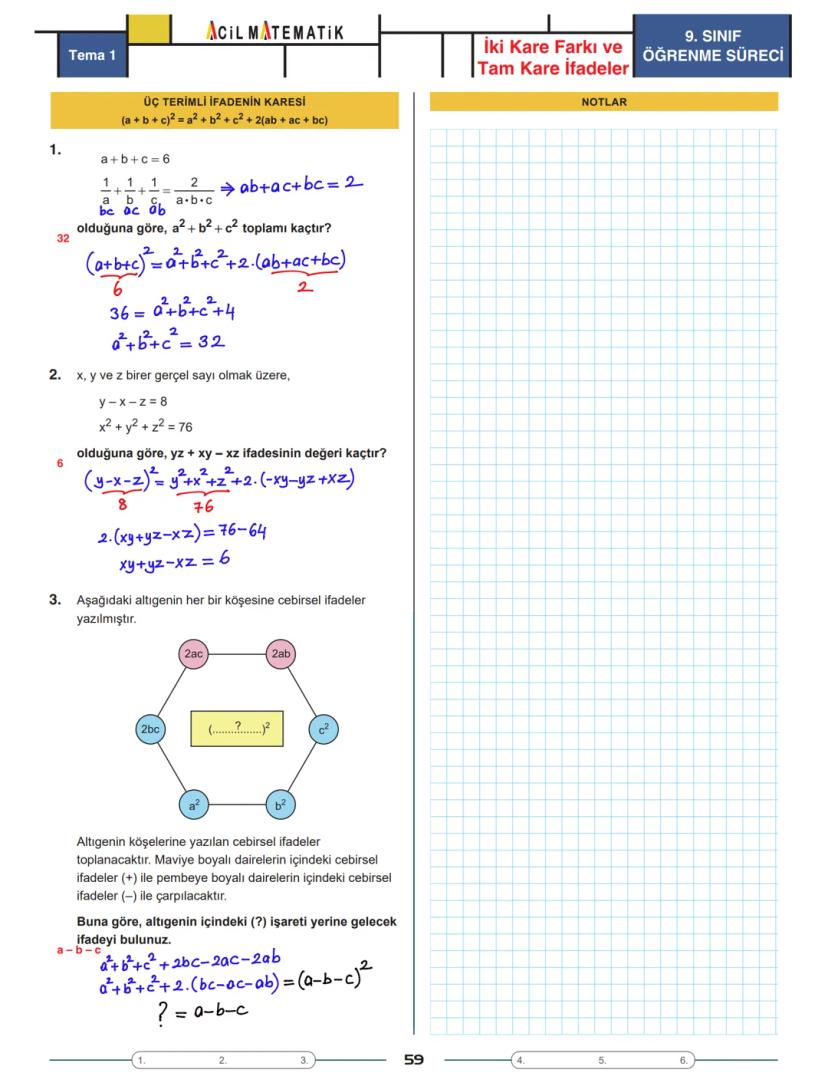 Tema 1
ACİL MATEMATİK
İki Kare Farkı ve
Tam Kare İfadeler
9. SINIF
ÖĞRENME SÜRECİ
ÜÇ TERİMLİ İFADENİN KARESİ
(a + b + c)² = a² + b² + c² + 2(ab + ac + bc)
NOTLAR
1.
a + b + c = 6
1/a + 1/b + 1/c = 2/(a·b·c) ⇒ ab+ac+bc = 2
bc ac ab
olduğuna göre, a² + b² + c² toplamı kaçtır?
32
(a+b+c)² = a²+b²+c²+2.(ab+ac+bc)
6 2
36 = a²+b²+c²+4
a²+b²+c² = 32
2. x, y ve z birer gerçel sayı olmak üzere,
y – x – z = 8
x² + y² + z² = 76
olduğuna göre, yz + xy – xz ifadesinin değeri kaçtır?
6
(y-x-z)² = y²+x²+z²+2.(-xy-yz+xz)
8 76
2.(xy+yz-xz) = 76-64
xy+yz-xz = 6
3. Aşağıdaki altıgenin her bir köşesine cebirsel ifadeler
yazılmıştır.
2ac 2ab
2bc (........?........)² c²
a² b²
Altıgenin köşelerine yazılan cebirsel ifadeler
toplanacaktır. Maviye boyalı dairelerin içindeki cebirsel
ifadeler (+) ile pembeye boyalı dairelerin içindeki cebirsel
ifadeler (–) ile çarpılacaktır.
Buna göre, altıgenin içindeki (?) işareti yerine gelecek
ifadeyi bulunuz.
a – b – c
a²+b²+c²+2bc-2ac-2ab
a²+b²+c²+2.(bc-ac-ab) = (a-b-c)²
? = a-b-c
1. 2. 3. 59 4. 5. 6.